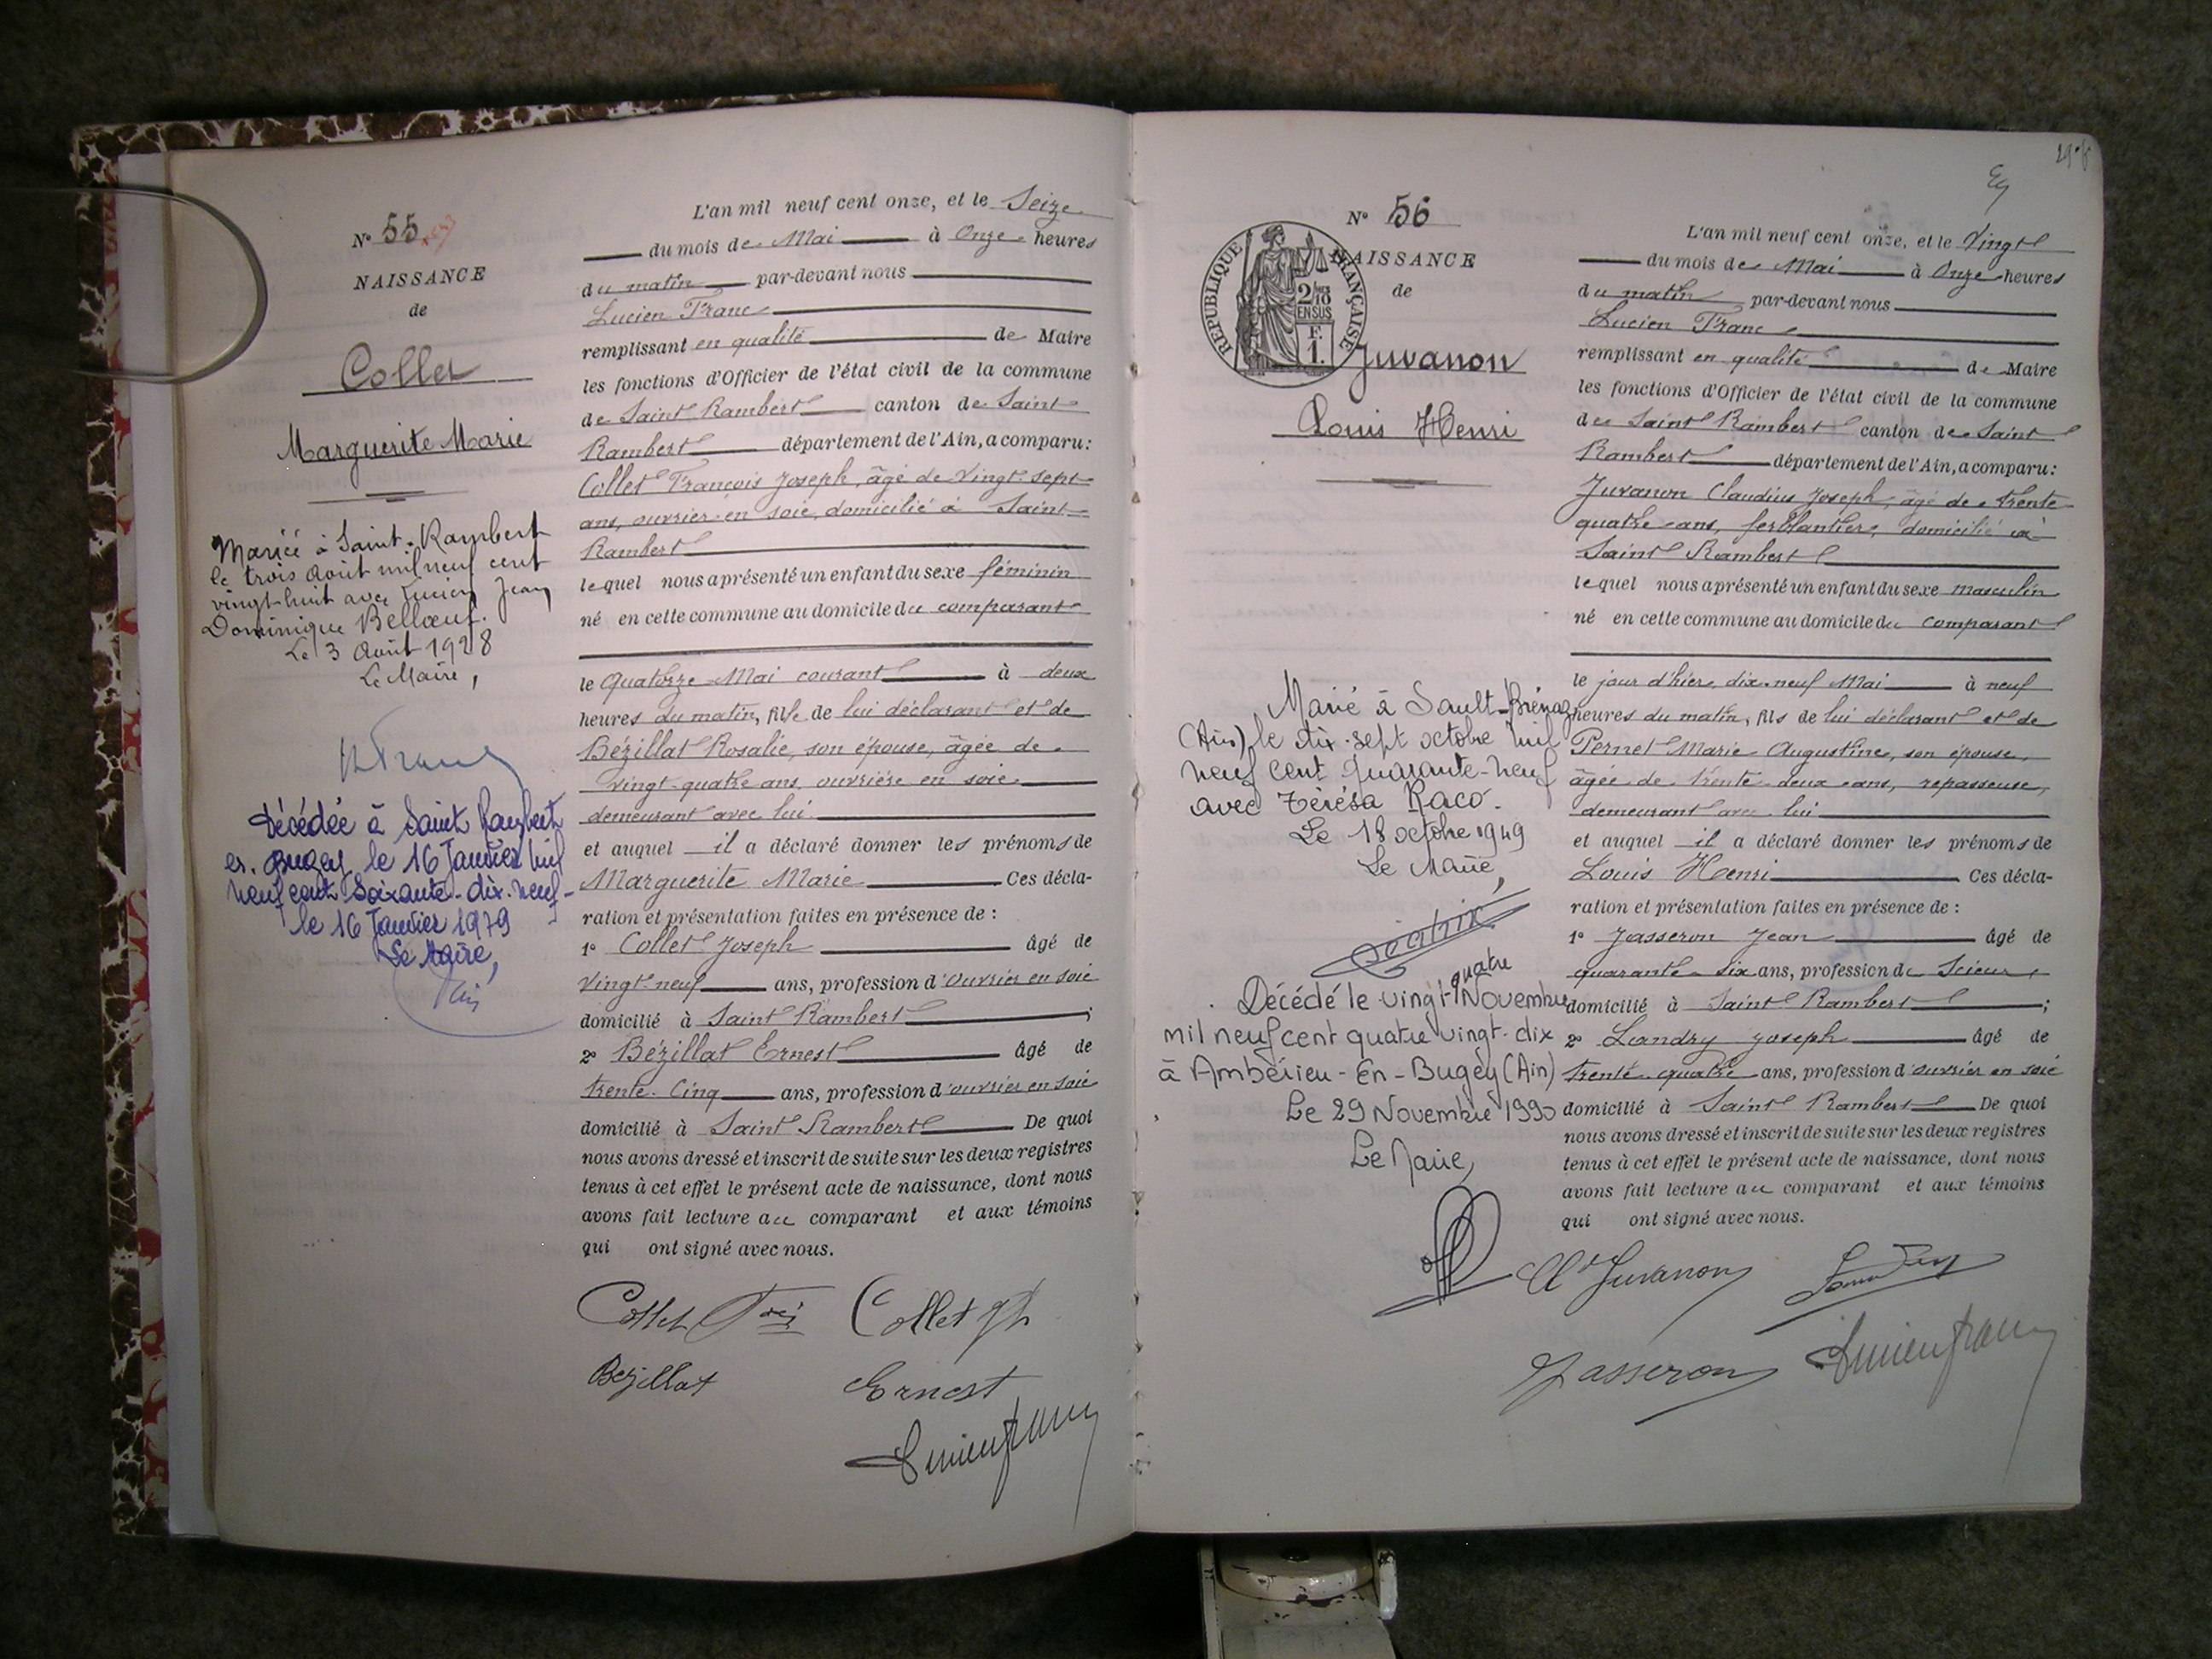 N° 55
NAISSANCE
de
Collet
Marguerite Marie
Mariée à Saint-Rambert
le trois août mil neuf cent
vingt-huit avec Lucien Jean
Dominique Bellœuf.
Le 3 Août 1928
Le Maire,
Décédée à Saint Rambert
en Bugey le 16 Janvier mil
neuf cent soixante-dix-neuf-
le 16 Janvier 1979
Le Maire,
L'an mil neuf cent onze, et le Seize
du mois de Mai à Onze heures
du matin par-devant nous
Lucien Franc
remplissant en qualité de Maire
les fonctions d'Officier de l'état civil de la commune
de Saint Rambert canton de Saint
Rambert département de l'Ain, a comparu:
Collet François Joseph, âgé de Vingt-sept
ans, ouvrier en soie, domicilié à Saint
Rambert
lequel nous a présenté un enfant du sexe féminin
né en cette commune au domicile du comparant
le Quatorze Mai courant à deux
heures du matin, fille de lui déclarant et de
Bézillat Rosalie, son épouse, âgée de
vingt-quatre ans, ouvrière en soie
demeurant avec lui
et auquel il a déclaré donner les prénoms de
Marguerite Marie Ces décla-
ration et présentation faites en présence de :
1° Collet Joseph âgé de
Vingt-neuf ans, profession d'ouvrier en soie
domicilié à Saint Rambert ;
2° Bézillat Ernest âgé de
trente-cinq ans, profession d'ouvrier en soie
domicilié à Saint Rambert De quoi
nous avons dressé et inscrit de suite sur les deux registres
tenus à cet effet le présent acte de naissance, dont nous
avons fait lecture au comparant et aux témoins
qui ont signé avec nous.
Collet Collet
Bézillat Ernest
Lucien Franc
N° 56
NAISSANCE
de
RÉPUBLIQUE FRANÇAISE
2/10
EN SUS
F.
1.
Juvanon
Louis Henri
Marié à Sault-Brénaz
(Ain) le dix-sept octobre mil
neuf cent quarante-neuf
avec Térésa Raco.
Le 18 octobre 1949
Le Maire,
quatre
Décédé le vingt-Novembre
mil neuf cent quatre vingt-dix
à Ambérieu-En-Bugey (Ain)
Le 29 Novembre 1990
Le Maire,
L'an mil neuf cent onze, et le Vingt
du mois de Mai à Onze heures
du matin par-devant nous
Lucien Franc
remplissant en qualité de Maire
les fonctions d'Officier de l'état civil de la commune
de Saint Rambert canton de Saint
Rambert département de l'Ain, a comparu:
Juvanon Claudius Joseph, âgé de trente
quatre ans, ferblantier, domicilié à
Saint Rambert
lequel nous a présenté un enfant du sexe masculin
né en cette commune au domicile du comparant
le jour d'hier, dix-neuf Mai à neuf
heures du matin, fils de lui déclarant et de
Pernet Marie Augustine, son épouse,
âgée de trente-deux ans, repasseuse,
demeurant avec lui
et auquel il a déclaré donner les prénoms de
Louis Henri Ces décla-
ration et présentation faites en présence de :
1° Jasseron Jean âgé de
quarante-six ans, profession de Scieur,
domicilié à Saint Rambert ;
2° Landry Joseph âgé de
trente-quatre ans, profession d'ouvrier en soie
domicilié à Saint Rambert De quoi
nous avons dressé et inscrit de suite sur les deux registres
tenus à cet effet le présent acte de naissance, dont nous
avons fait lecture au comparant et aux témoins
qui ont signé avec nous.
Cl Juvanon
Jasseron Lucien Franc